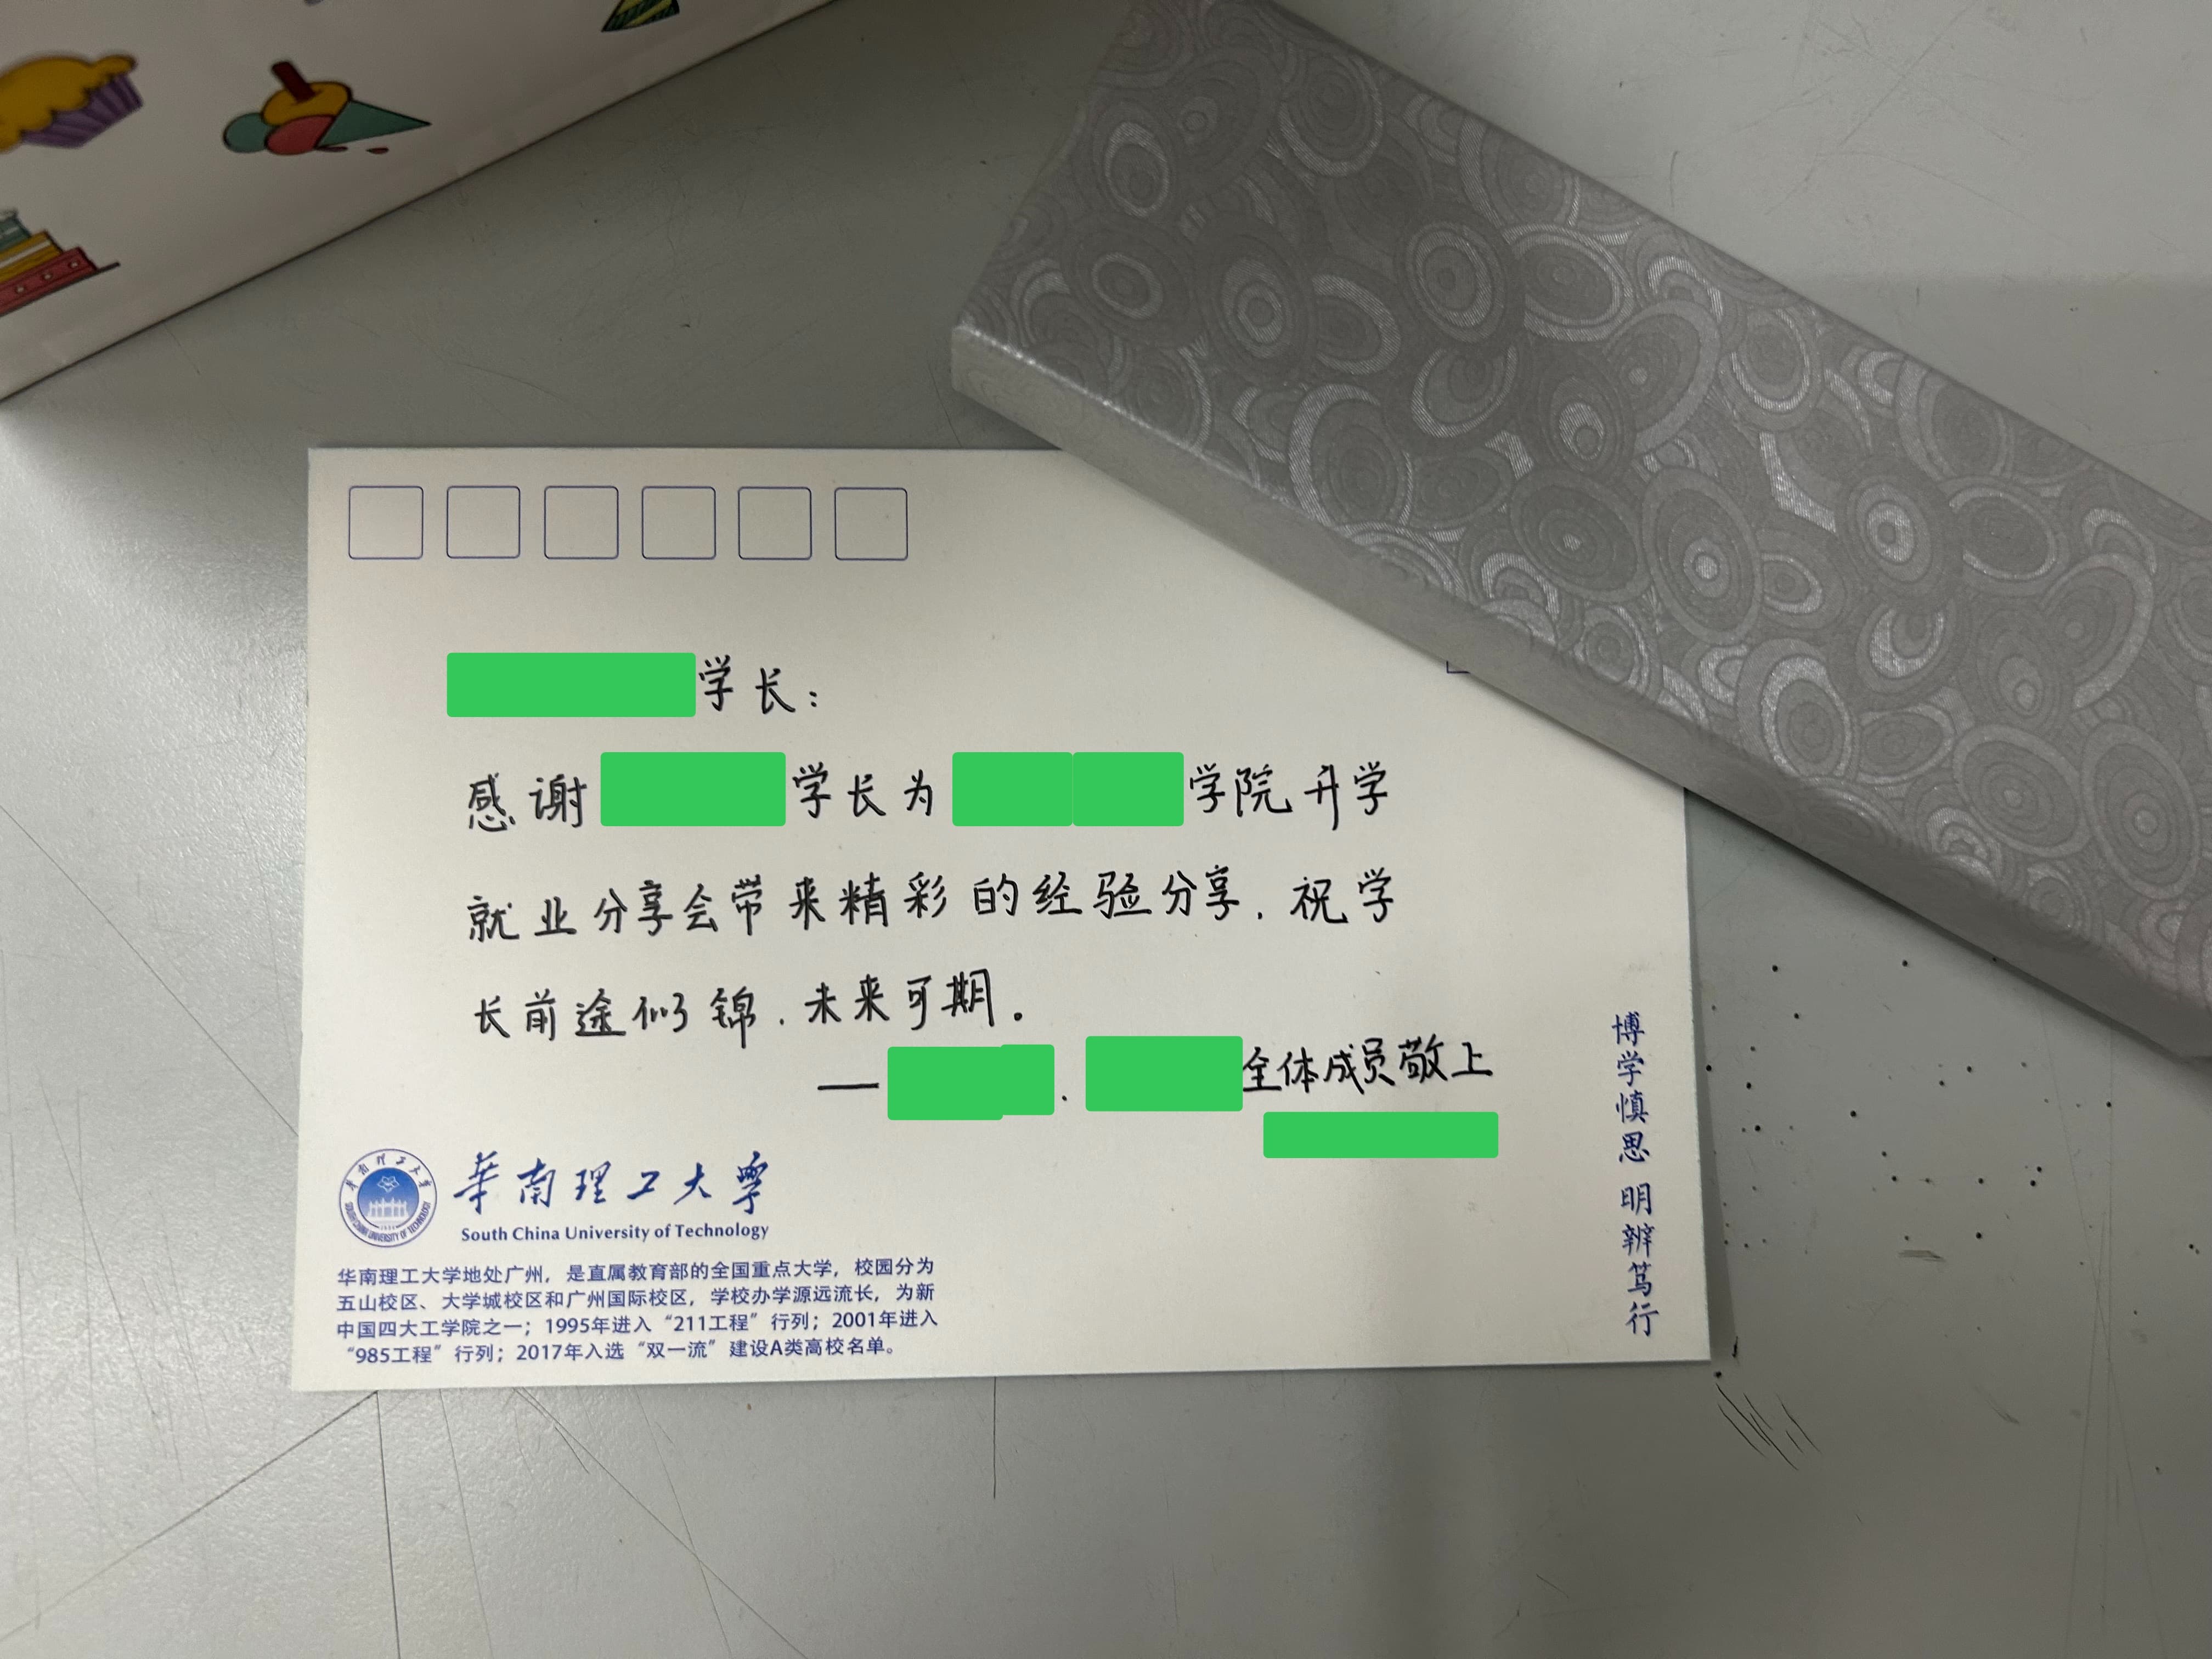 学长：
感谢学长为学院升学
就业分享会带来精彩的经验分享，祝学
长前途似锦，未来可期。
——、全体成员敬上
华南理工大学
SOUTH CHINA UNIVERSITY OF TECHNOLOGY
華南理工大學
South China University of Technology
华南理工大学地处广州，是直属教育部的全国重点大学，校园分为
五山校区、大学城校区和广州国际校区，学校办学源远流长，为新
中国四大工学院之一；1995年进入“211工程”行列；2001年进入
“985工程”行列；2017年入选“双一流”建设A类高校名单。
博学慎思 明辨笃行